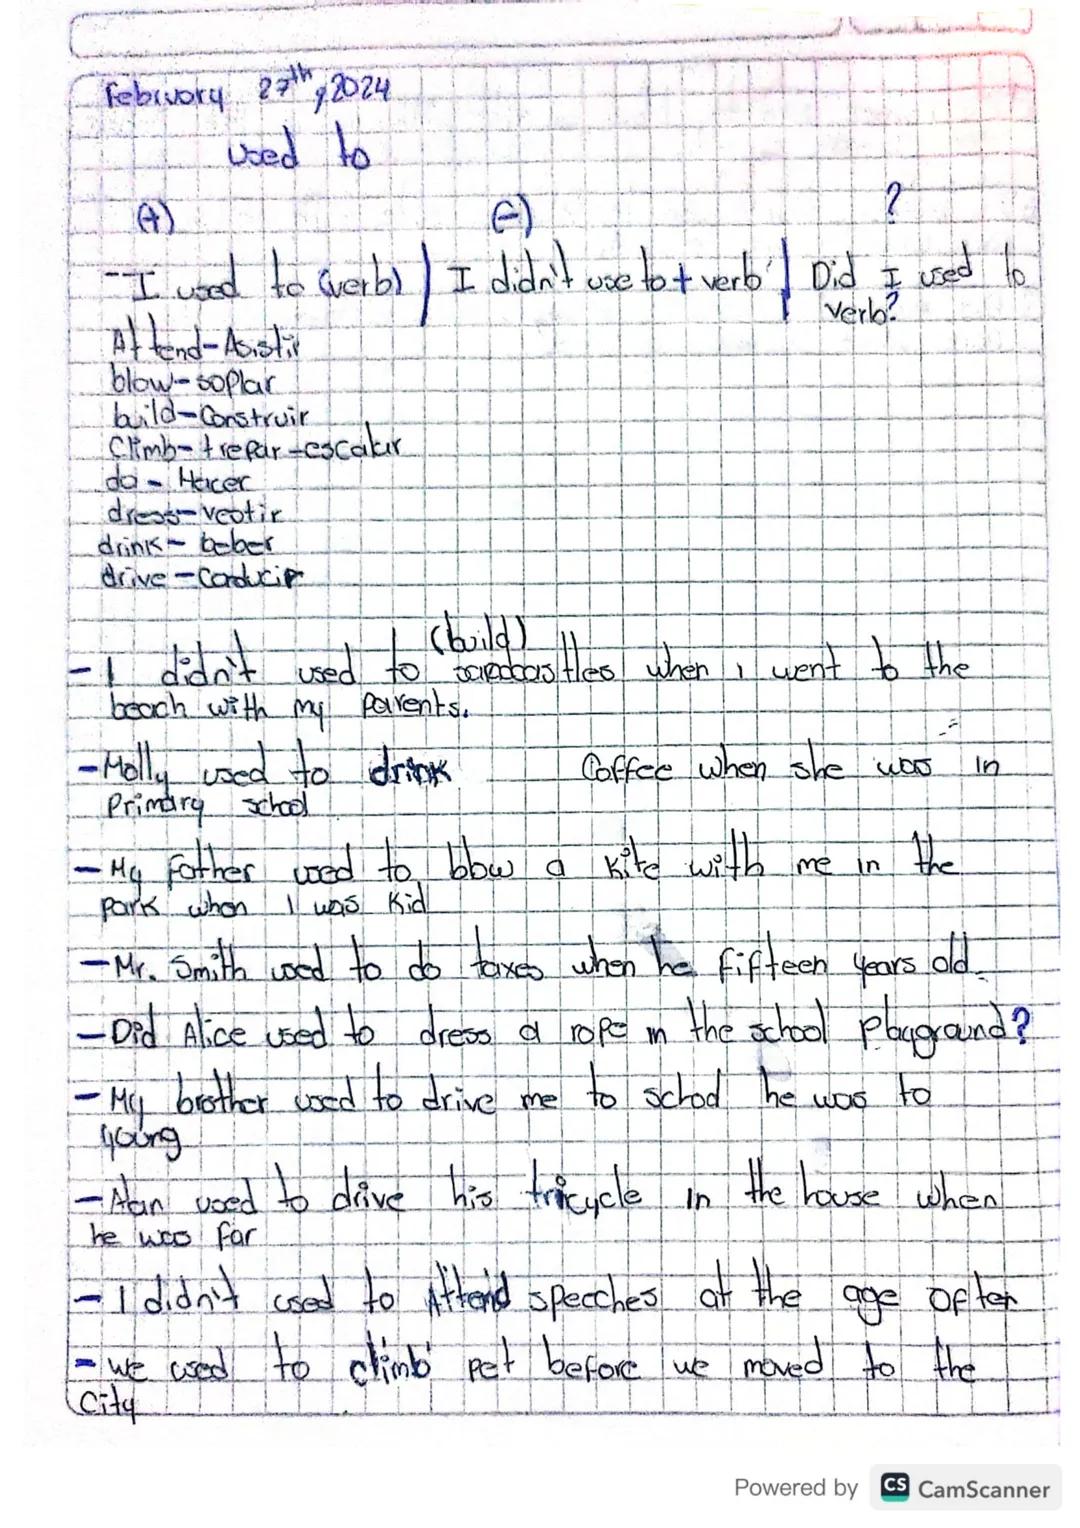 February 27th, 2024
used to
(+) (-) ?
-I used to (verb) | I didn't use to + verb | Did I used to
verb?
Attend-Asistir
blow-soplar
build-Construir
Climb-trepar-escalar
do - Hacer
dress-vestir
drink- beber
drive-Conducir
(build)
- I didn't used to when i went to the
beach with my parents.
-Molly used to drink Coffee when she was in
Primary school
- My father used to blow a kite with me in the
park when I was Kid
-Mr. Smith used to do taxes when he fifteen years old.
-Did Alice used to dress a rope in the school playground?
- My brother used to drive me to school he was to
young
-Alan used to drive his tricycle in the house when
he was far
- I didn't used to Attend specches at the age of ten
- we used to climb pet before we moved to the
City
Powered by CS CamScanner